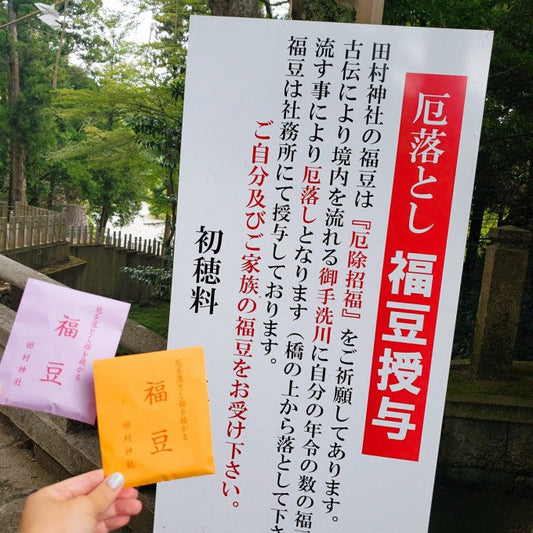 厄落とし 福豆授与
田村神社の福豆は『厄除招福』をご祈願してあります。
古伝により境内を流れる御手洗川に自分の年令の数の福豆
流す事により厄落しとなります（橋の上から落として下
福豆は社務所にて授与しております。
ご自分及びご家族の福豆をお受け下さい。
初穂料
厄を落とし福を授かる
福豆
田村神社
厄を落とし福を授かる
福豆
田村神社